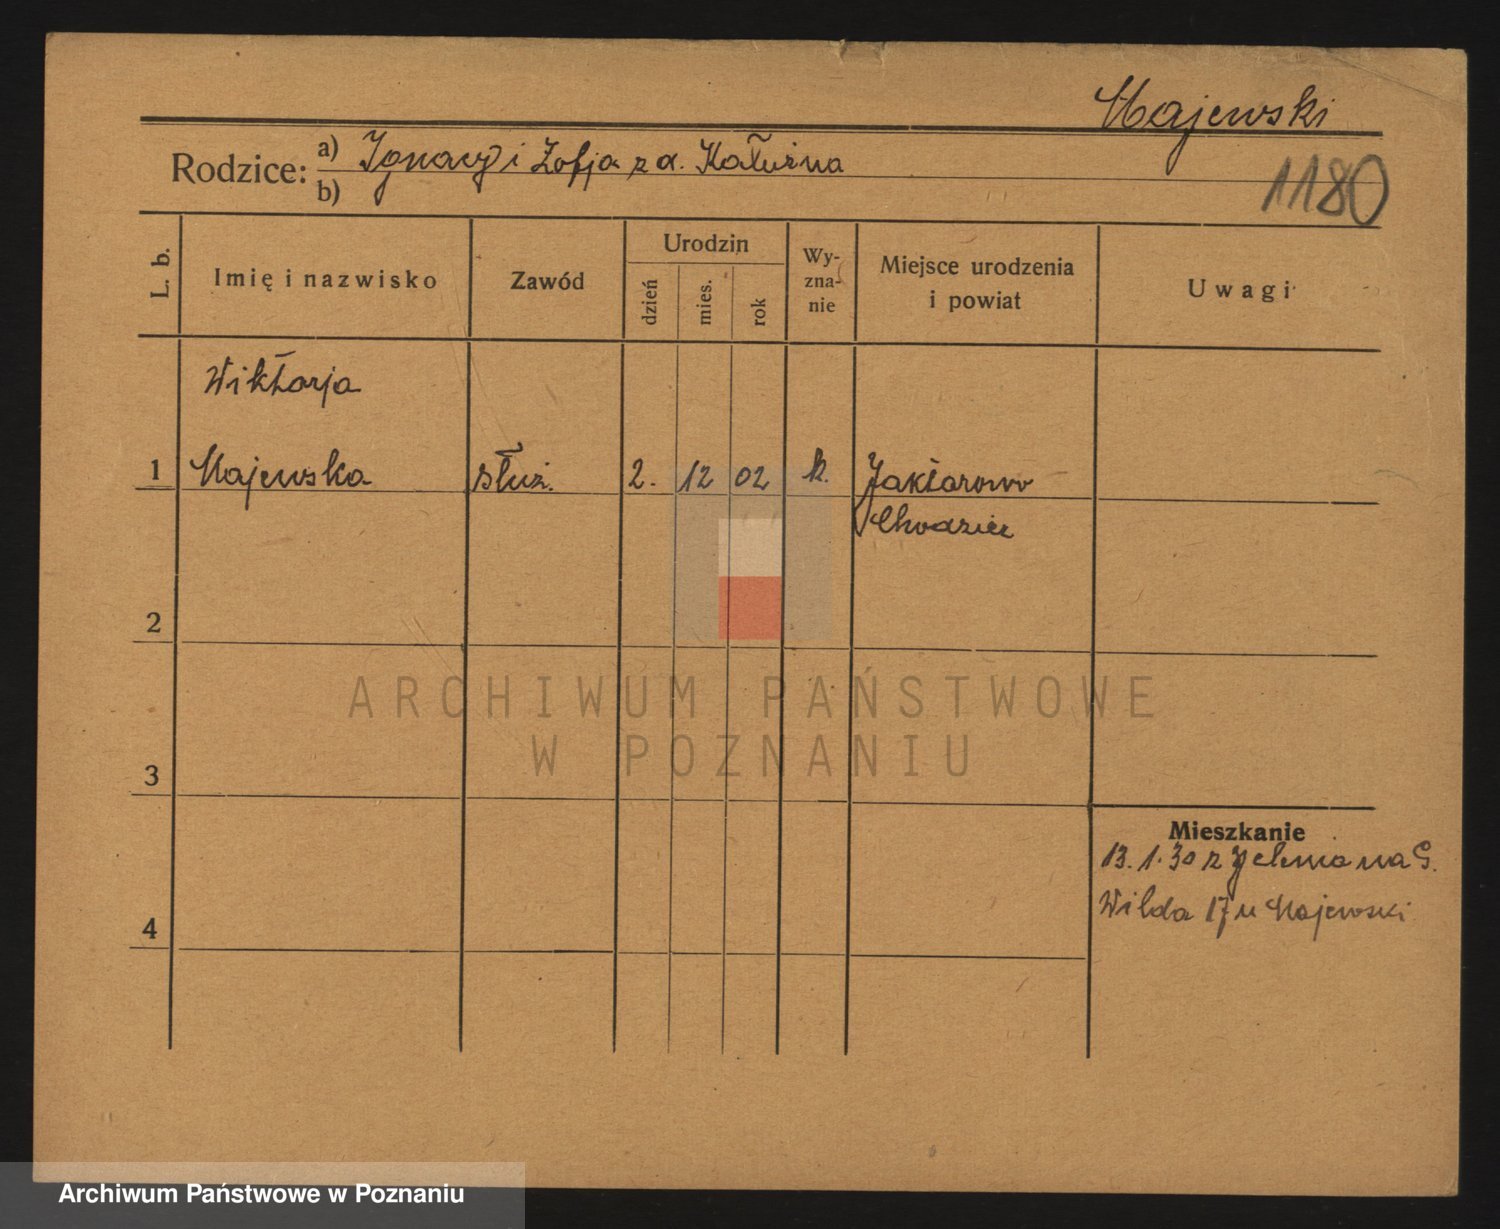 Majewski
Rodzice: a) Ignacy i Zofja z d. Kałużna
b)
1180
L. b.
Imię i nazwisko
Zawód
Urodzin
dzień
mies.
rok
Wy-
zna-
nie
Miejsce urodzenia
i powiat
Uwagi
Wiktorja
1 Majewska służ. 2. 12 02 k. Jaktorowo
Chodzież
2
3
4
Mieszkanie
13. 1. 30 z na G.
Wilda 17 u Majewski
ARCHIWUM PAŃSTWOWE
W POZNANIU
Archiwum Państwowe w Poznaniu